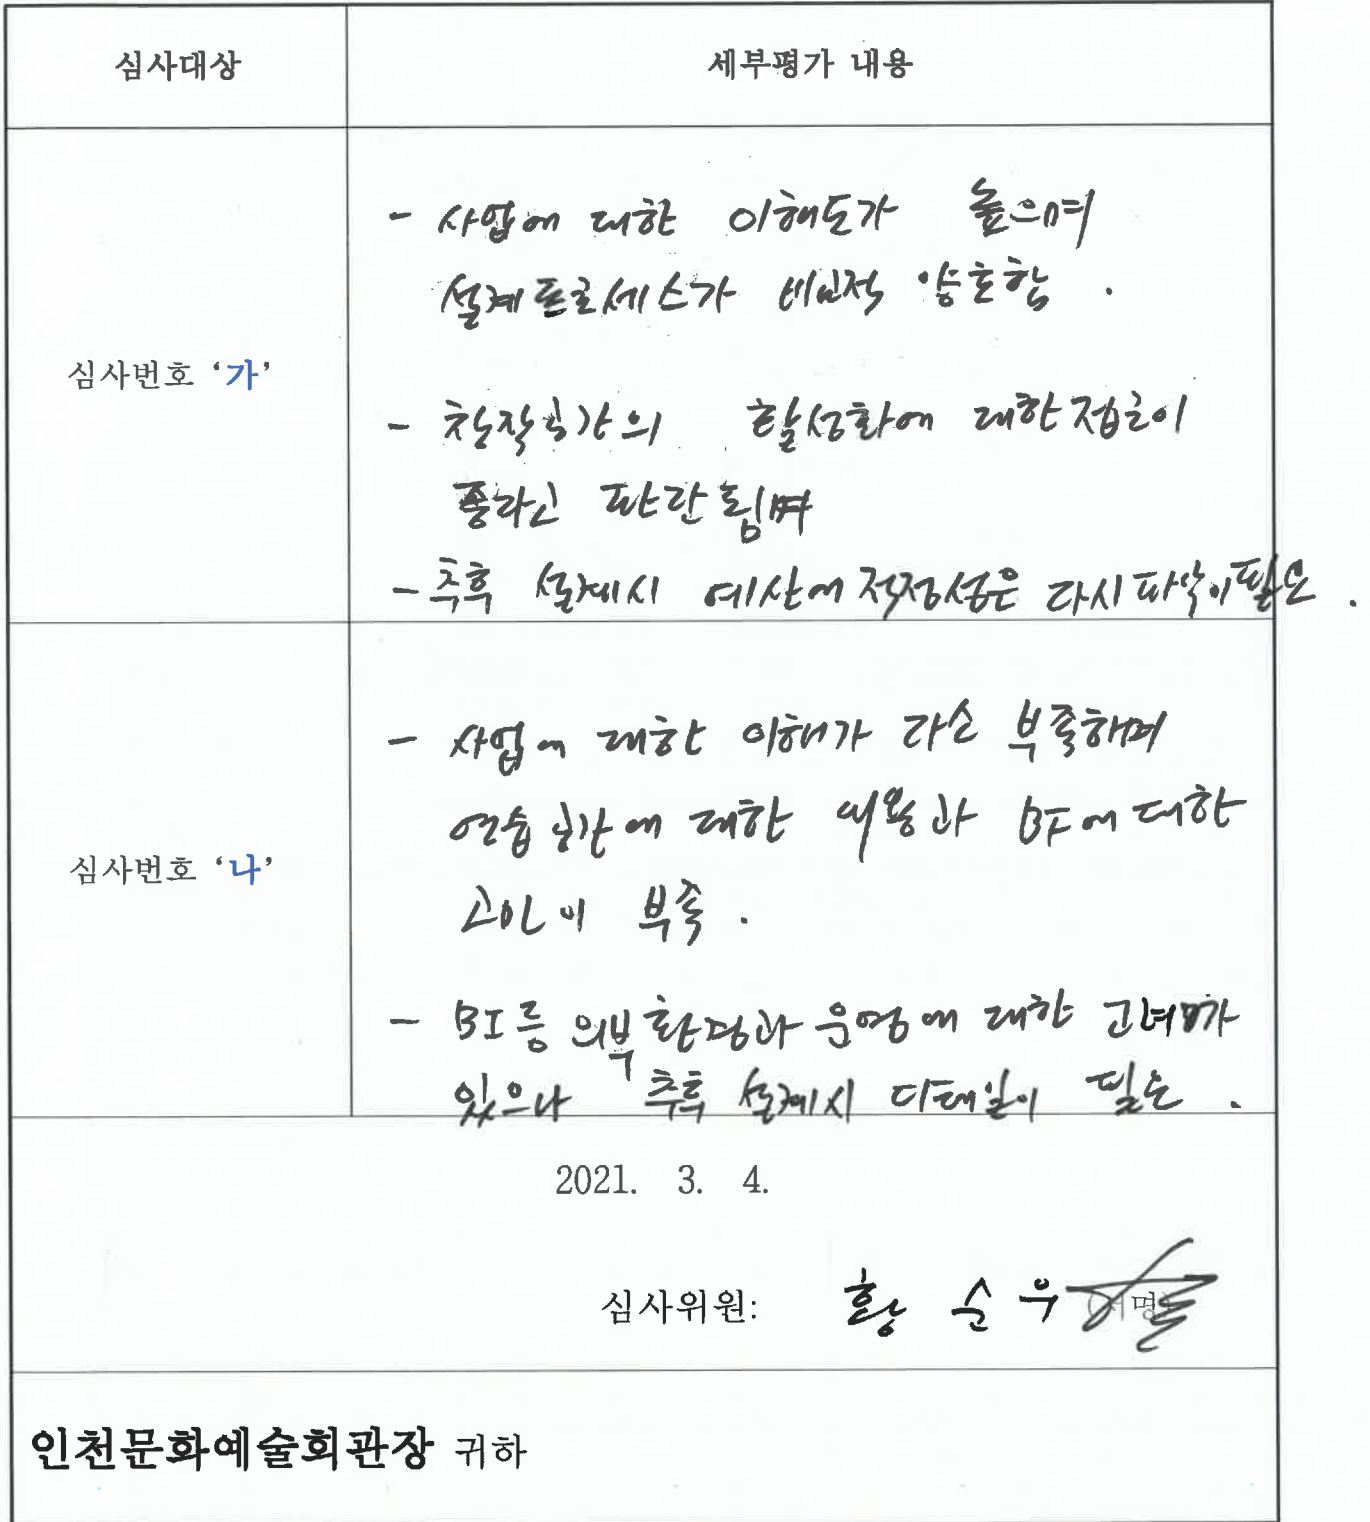 심사대상
세부평가 내용
심사번호 '가'
- 사업에 대한 이해도가 높으며
설계프로세스가 비교적 양호함.
- 창작공간의 활성화에 대한 접근이
좋다고 판단됨며
- 추후 설계시 예산에 적정성은 다시 파악이 필요.
심사번호 '나'
- 사업에 대한 이해가 다소 부족하며
연습공간에 대한 내용과 BF에 대한
고민이 부족.
- BI등 외부환경과 운영에 대한 고려가
있으나 추후 설계시 디테일이 필요.
2021. 3. 4.
심사위원: 황순우 (서명)
인천문화예술회관장 귀하